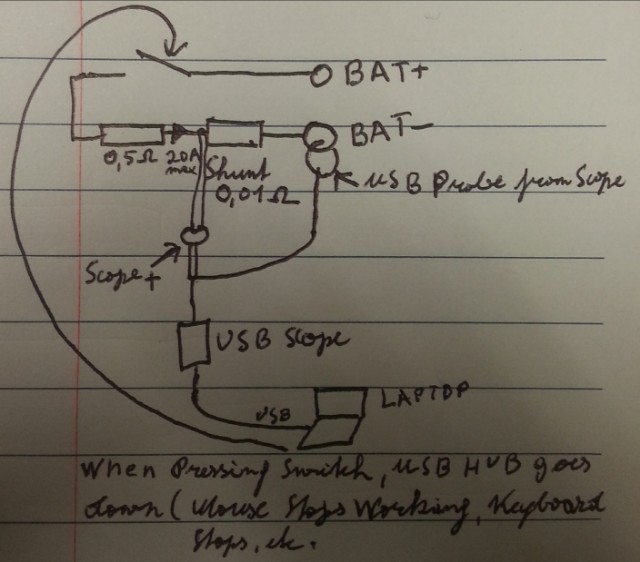 BAT+
BAT-
0,5Ω
20A
max
Shunt
0,01Ω
USB Probe from Scope
Scope +
USB Scope
LAPTOP
USB
When Pressing Switch, USB HUB goes
down ( Mouse Stops Working, Keyboard
Stops, etc.